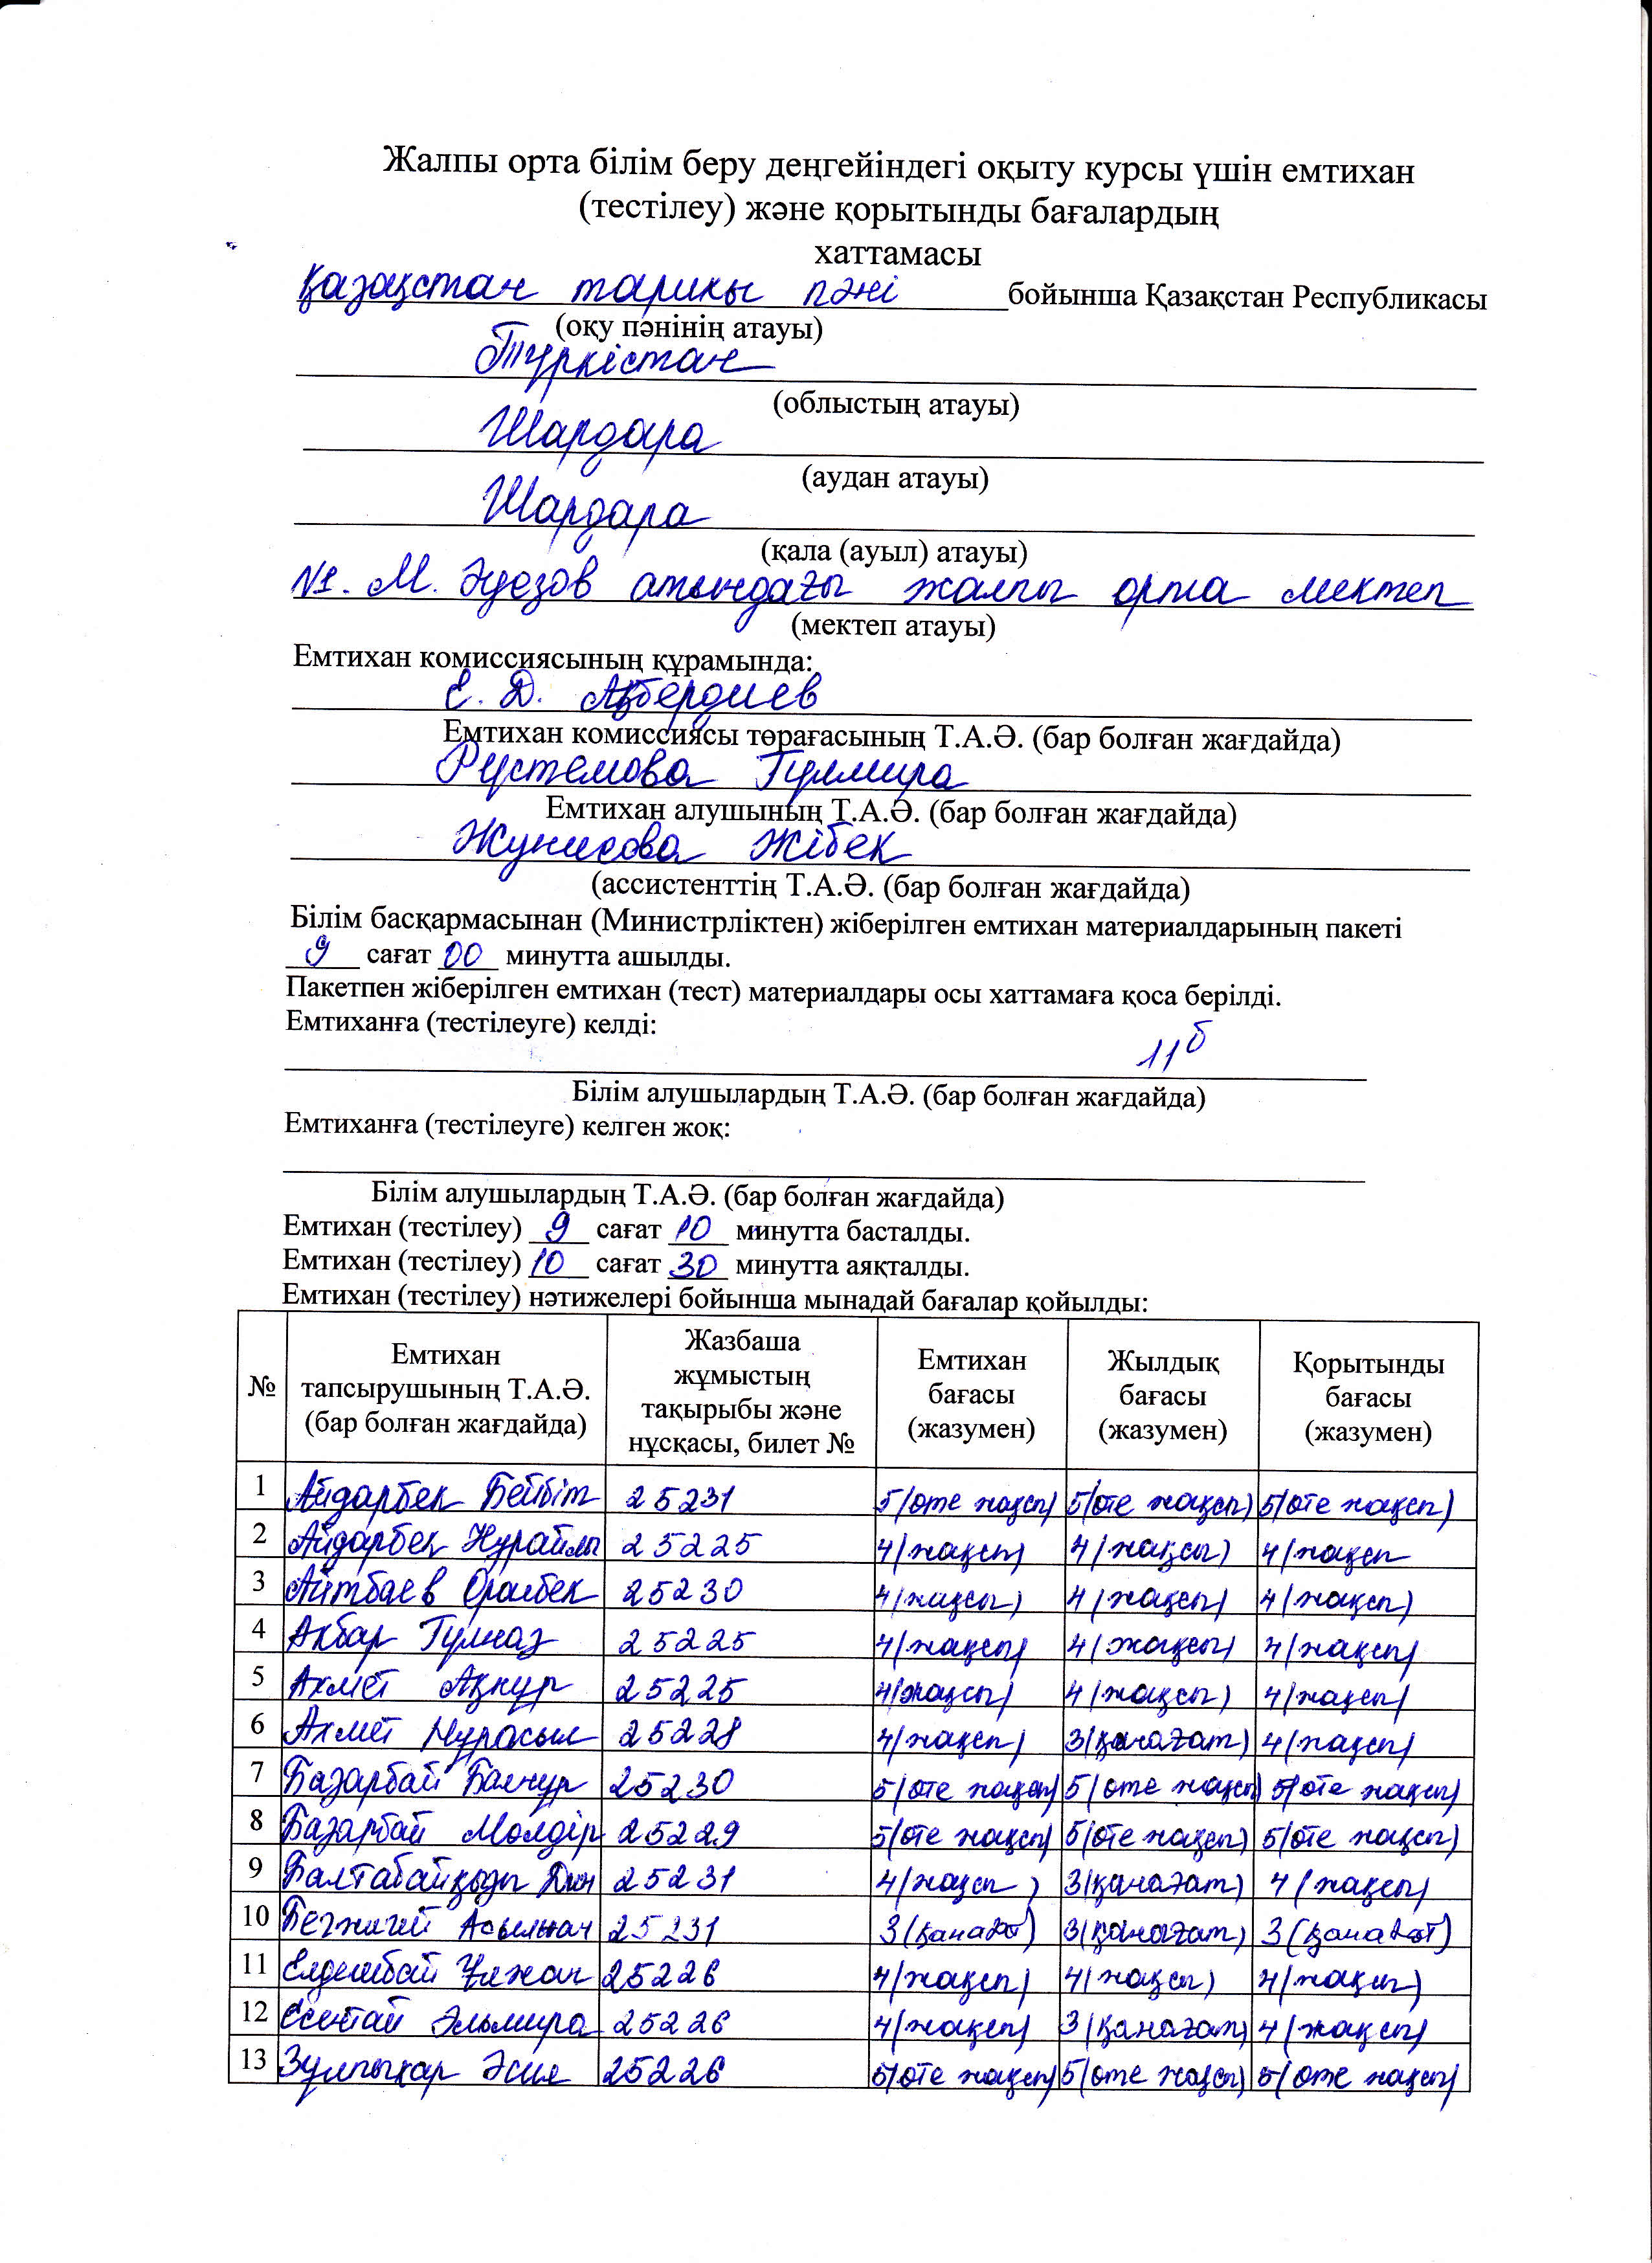 Жалпы орта білім беру деңгейіндегі оқыту курсы үшін емтихан
(тестілеу) және қорытынды бағалардың
хаттамасы
Қазақстан тарихы пәні бойынша Қазақстан Республикасы
(оқу пәнінің атауы)
Түркістан
(облыстың атауы)
Шардара
(аудан атауы)
Шардара
(қала (ауыл) атауы)
№1. М. Әуезов атындағы жалпы орта мектеп
(мектеп атауы)
Емтихан комиссиясының құрамында:
Е. Д. Ақбердиев
Емтихан комиссиясы төрағасының Т.А.Ә. (бар болған жағдайда)
Рустемова Гулмира
Емтихан алушының Т.А.Ә. (бар болған жағдайда)
Жунисова Жібек
(ассистенттің Т.А.Ә. (бар болған жағдайда)
Білім басқармасынан (Министрліктен) жіберілген емтихан материалдарының пакеті
9 сағат 00 минутта ашылды.
Пакетпен жіберілген емтихан (тест) материалдары осы хаттамаға қоса берілді.
Емтиханға (тестілеуге) келді:
11 б
Білім алушылардың Т.А.Ә. (бар болған жағдайда)
Емтиханға (тестілеуге) келген жоқ:
Білім алушылардың Т.А.Ә. (бар болған жағдайда)
Емтихан (тестілеу) 9 сағат 10 минутта басталды.
Емтихан (тестілеу) 10 сағат 30 минутта аяқталды.
Емтихан (тестілеу) нәтижелері бойынша мынадай бағалар қойылды:
№ Емтихан тапсырушының Т.А.Ә. (бар болған жағдайда) Жазбаша жұмыстың тақырыбы және нұсқасы, билет № Емтихан бағасы (жазумен) Жылдық бағасы (жазумен) Қорытынды бағасы (жазумен)
1 Айдарбек Бейбіт 25231 5(өте жақсы) 5(өте жақсы) 5(өте жақсы)
2 Айдарбек Нурайлы 25225 4(жақсы) 4(жақсы) 4(жақсы
3 Айтбаев Оралбек 25230 4(жақсы) 4(жақсы) 4(жақсы)
4 Акбар Гулназ 25225 4(жақсы) 4(жақсы) 4(жақсы)
5 Ахмет Ақнур 25225 4(жақсы) 4(жақсы) 4(жақсы)
6 Ахмет Нурасыл 25228 4(жақсы) 3(қанағат) 4(жақсы)
7 Базарбай Балнур 25230 5(өте жақсы) 5(өте жақсы) 5(өте жақсы)
8 Базарбай Мөлдір 25229 5(өте жақсы) 5(өте жақсы) 5(өте жақсы)
9 Балтабайқызы 25231 4(жақсы) 3(қанағат) 4(жақсы)
10 25231 3(қанағат) 3(қанағат) 3(қанағат)
11 Елдешбай Ұлжан 25226 4(жақсы) 4(жақсы) 4(жақсы)
12 Есентай Эльмира 25226 4(жақсы) 3(қанағат) 4(жақсы)
13 Зулпыхар Әсия 25226 5(өте жақсы) 5(өте жақсы) 5(өте жақсы)